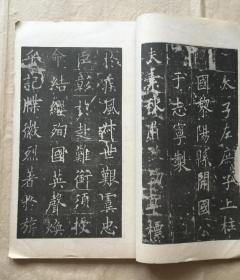 太子左庶子上柱
國黎陽縣開國公
于志寧製
夫素秋肅草標
於疾風叔世艱虞忠
臣彰於赴難銜須授
命結纓殉國英聲煥
乎記牒徽烈著於旂